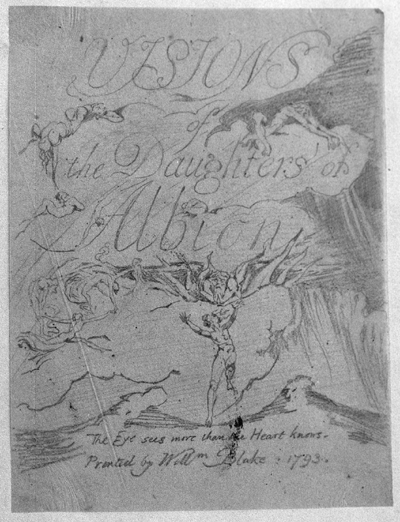 VISIONS
of
the Daughters of
Albion
The Eye sees more than the Heart knows.
Printed by Will.m Blake : 1793.